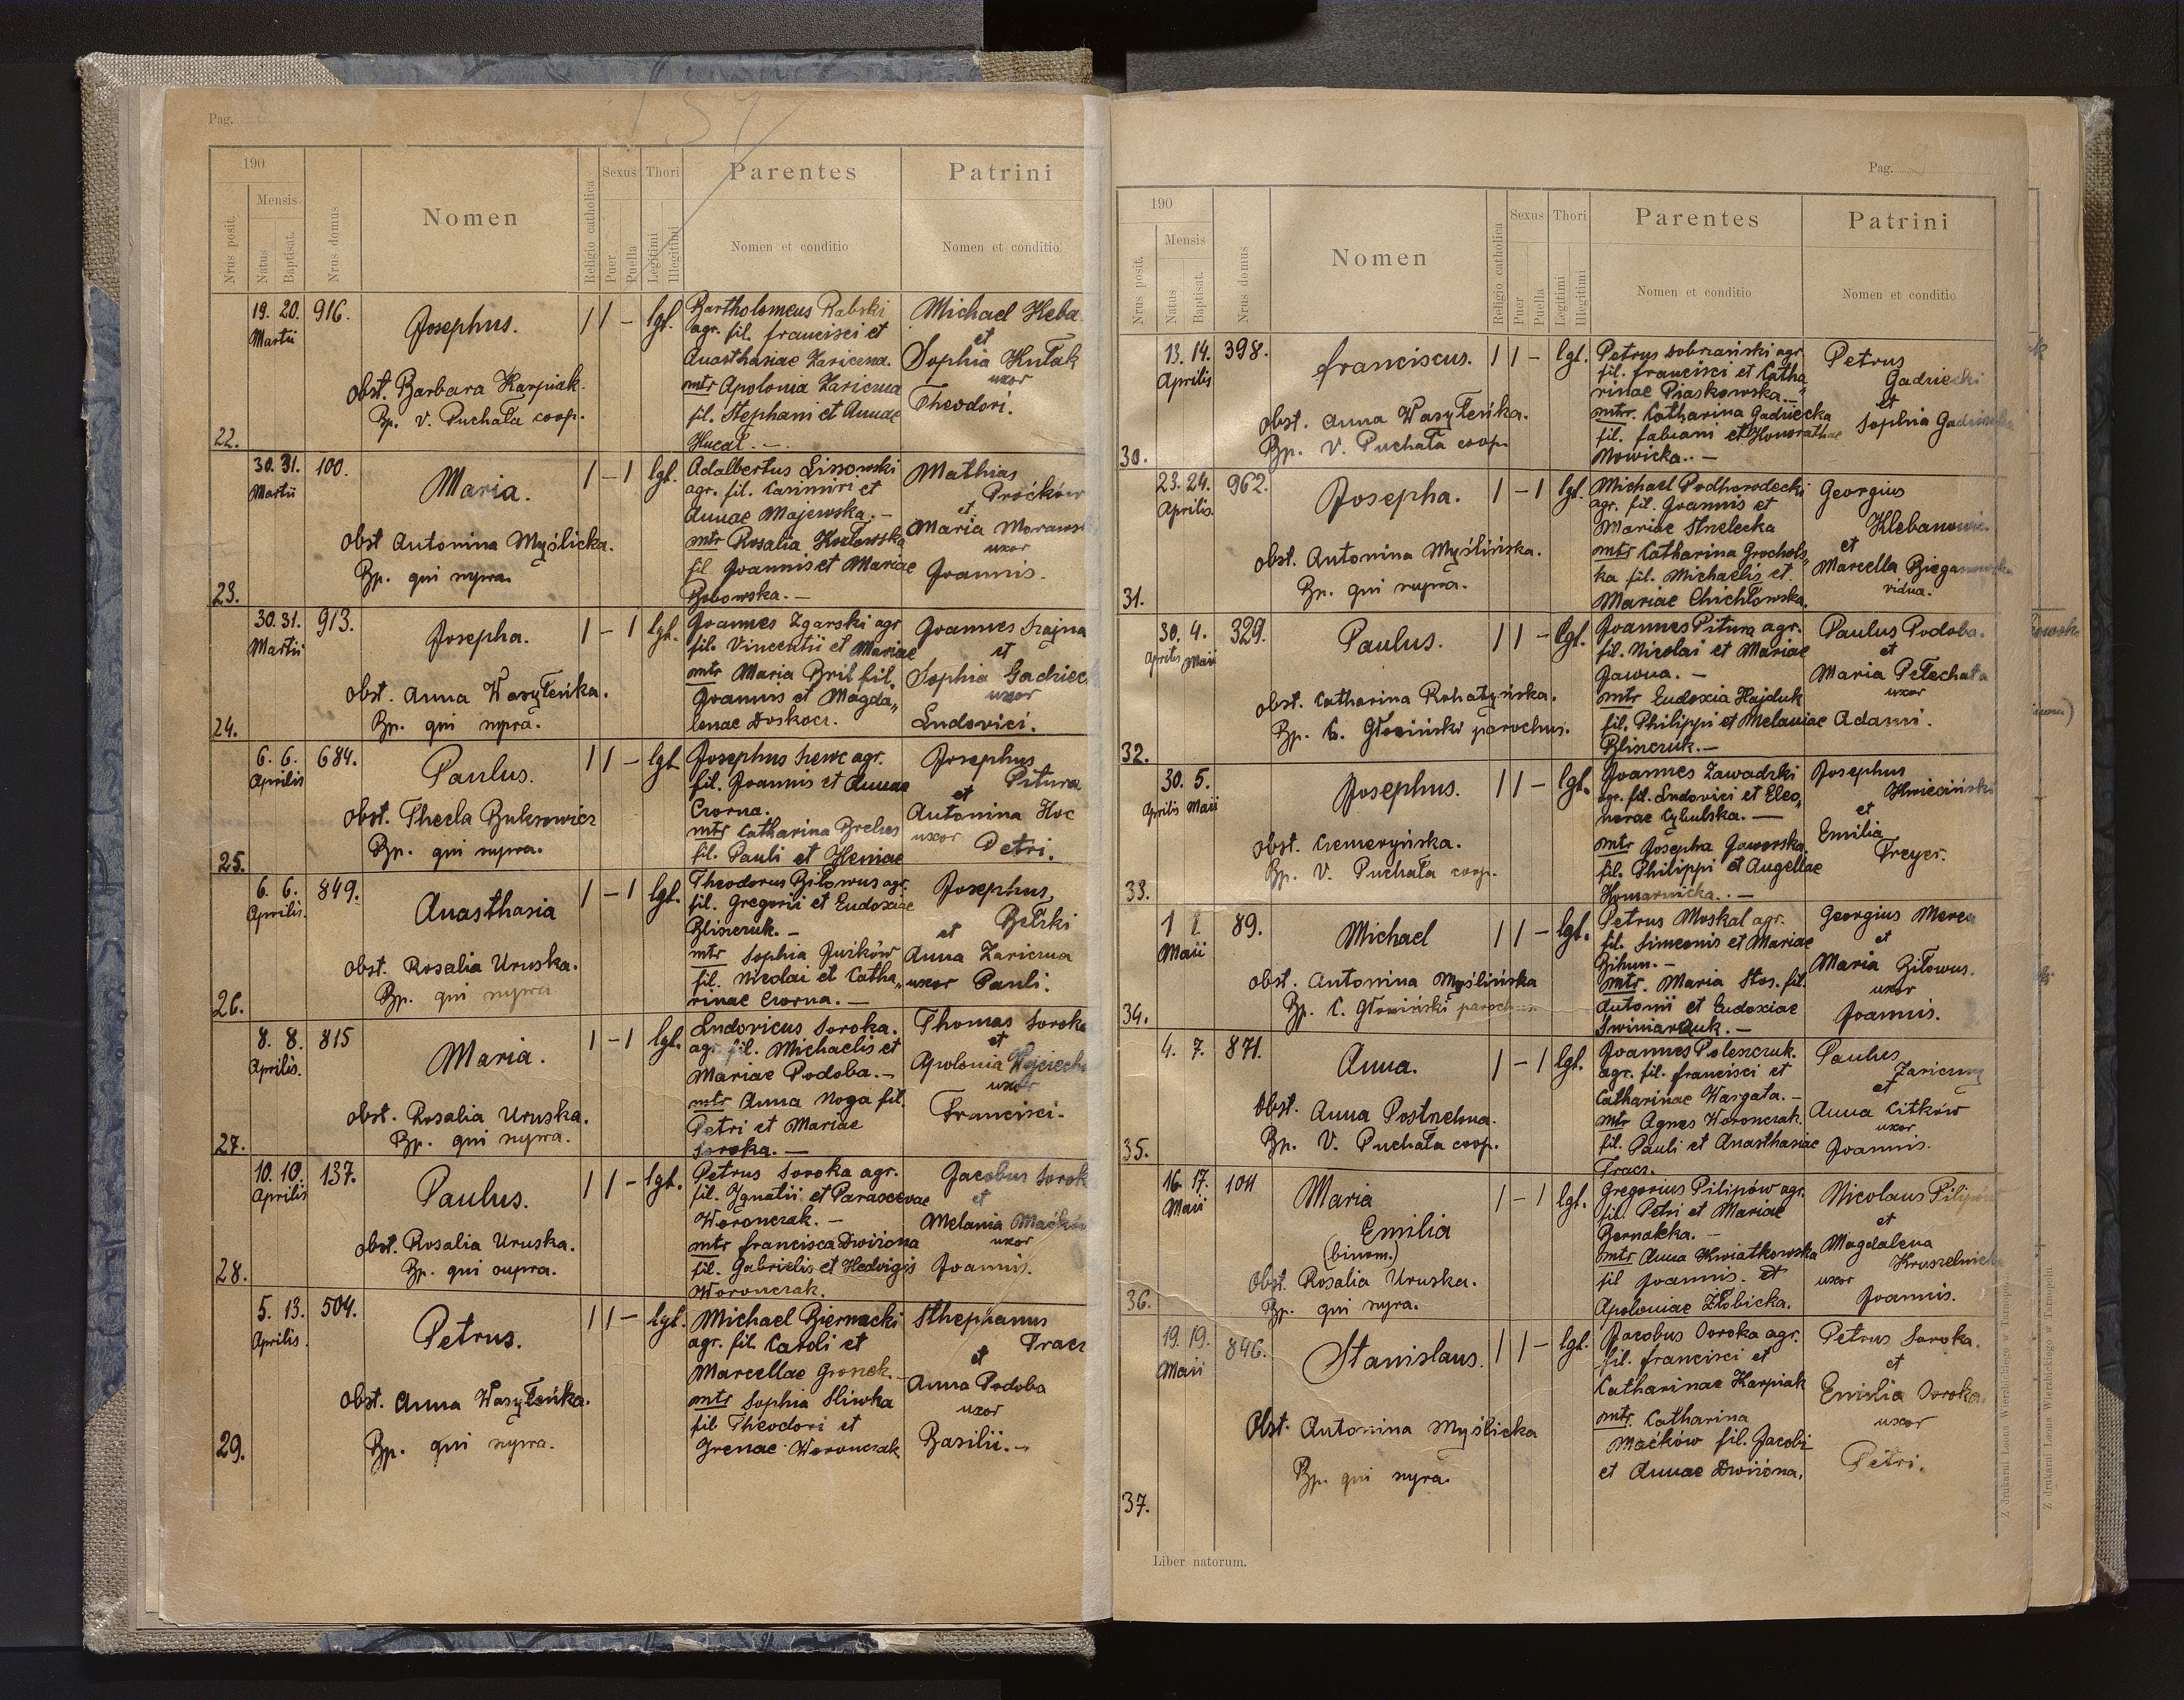 Pag. 8
157
190
Mensis
Nrus posit.
Natus
Baptisat.
Nrus domus
Nomen
Religio catholica
Sexus
Puer
Puella
Thori
Legitimi
Illegitimi
Parentes
Nomen et conditio
Patrini
Nomen et conditio
22.
19. 20.
Martii
916.
Josephus.
obst. Barbara Karpiak.
Bp. V. Puchała coop.
1 1 – lgt.
Bartholomeus Rabski
agr. fil. Francisci et
Anasthasiae Zariczna.
mtr Apolonia Zariczna
fil. Stephani et Annae
Hucał. —
Michael Heba
et
Sophia Kułak
uxor
Theodori.
23.
30. 31.
Martii
100.
Maria.
obst Antonina Myślicka.
Bp. qui supra.
1 – 1 lgt.
Adalbertus Lissowski
agr. fil. Casimiri et
Annae Majewska. —
mtr Rosalia Kozłowska
fil Joannis et Mariae
Bobowska. —
Mathias
Proćków
et
Maria Moraws
uxor
Joannis.
24.
30. 31.
Martii
913.
Josepha.
obst. Anna Wasyłeńka.
Bp. qui supra.
1 – 1 lgt.
Joannes Zgarski agr
fil. Vincentii et Mariae
mtr Maria Bril fil.
Joannis et Magda„
lenae Doskocz.
Joannes Szajna
et
Sophia Gadziec
uxor
Ludovici.
25.
6. 6.
Aprilis
684.
Paulus.
obst. Thecla Buksowicz
Bp. qui supra.
1 1 – lgt
Josephus Szewc agr.
fil. Joannis et Annae
Czorna.
mtr Catharina Brelus
fil. Pauli et Xeniae
Josephus
Pitura
et
Antonina Hoc
uxor Petri.
26.
6. 6.
Aprilis.
849.
Anasthasia
obst. Rosalia Uruska.
Bp. qui supra
1 – 1 lgt.
Theodorus Biłowus agr.
fil. Gregorii et Eudoxiae
Bliszczuk. —
mtr Sophia Jurków
fil. Nicolai et Catha„
rinae Czorna. —
Josephus
Bełski
et
Anna Zariczna
uxor Pauli.
27.
8. 8.
Aprilis.
815
Maria.
obst. Rosalia Uruska.
Bp. qui supra.
1 – 1 lgt.
Ludovicus Soroka.
agr. fil. Michaelis et
Mariae Podoba. —
mtr Anna Noga fil.
Petri et Mariae
Soroka. —
Thomas Soroka
et
Apolonia Wojciech
uxor
Francisci.
28.
10. 10.
Aprilis
137.
Paulus.
obst. Rosalia Uruska.
Bp. qui supra.
1 1 – lgt.
Petrus Soroka agr.
fil. Ignatii et Parascevae
Woronczak. —
mtr Francisca Dwiżona
fil. Gabrielis et Hedvigis
Woronczak.
Jacobus Sorok
et
Melania Maćków
uxor
Joannis.
29.
5. 13.
Aprilis.
504.
Petrus.
obst. Anna Wasyłeńka.
Bp. qui supra.
1 1 – lgt.
Michael Biernacki
agr. fil. Caroli et
Marcellae Gronek.
mtr Sophia Sliwka
fil Theodori et
Irenae Woronczak
Sthephanus
Tracz
et
Anna Podoba
uxor
Basilii. —
Pag. 9
190
Mensis
Nrus posit.
Natus
Baptisat.
Nrus domus
Nomen
Religio catholica
Sexus
Puer
Puella
Thori
Legitimi
Illegitimi
Parentes
Nomen et conditio
Patrini
Nomen et conditio
30.
13. 14.
Aprilis
398.
Franciscus.
obst. Anna Wasyłeńka.
Bp. V. Puchała coop.
1 1 – lgt.
Petrus Dobrzański agr.
fil. Francisci et Catha„
rinae Piaskowska. —
mtr. Catharina Gadziecka
fil. Fabiani et Honorathae
Nowicka. —
Petrus
Gadziecki
et
Sophia Gadziecka
31.
23. 24.
Aprilis.
962.
Josepha.
obst. Antonina Myślińska.
Bp. qui supra.
1 – 1 lgt.
Michael Podhorodecki
agr. fil. Joannis et
Mariae Strzelecka
mtr Catharina Grochols„
ka fil. Michaelis et
Mariae Chichłowska.
Georgius
Klebanowic
et
Marcella Bieganowska
vidua.
32.
30. 4.
Aprilis Maii
329.
Paulus.
obst. Catharina Rohatyńska.
Bp. C. Głowiński parochus.
1 1 – lgt.
Joannes Pitura agr.
fil. Nicolai et Mariae
Jawna. —
mtr Eudoxia Hajduk
fil. Philippi et Melaniae
Bliszczuk. —
Paulus Podoba.
et
Maria Petechata
uxor
Adami.
33.
30. 5.
Aprilis Maii
Josephus.
obst. Czemeryńska.
Bp. V. Puchała coop.
1 1 – lgt.
Joannes Zawadzki
agr. fil. Ludovici et Eleo„
norae Cybulska. —
mtr Josepha Jaworska.
fil. Philippi et Angellae
Komarnicka. —
Josephus
Kwieciński
et
Emilia
Freyer.
34.
1 1.
Maii
89.
Michael
obst. Antonina Myślińska
Bp. C. Głowiński parochus
1 1 – lgt.
Petrus Moskal agr.
fil. Simeonis et Mariae
Bihun. —
mtr. Maria Stos. fil.
Antonii et Eudoxiae
Swiniarczuk. —
Georgius Meren
et
Maria Biłowus.
uxor
Joannis.
35.
4. 7.
871.
Anna.
Obst. Anna Postrzelna.
Bp. V. Puchała coop.
1 – 1 lgt.
Joannes Poleszczuk.
agr. fil. Francisci et
Catharinae Wargata. —
mtr Agnes Woronczak.
fil. Pauli et Anasthasiae
Tracz.
Paulus
Zariczny
et
Anna Citków
uxor
Joannis.
36.
16. 17.
Maii
1011
Maria
Emilia
(binom.)
Obst. Rosalia Uruska.
Bp. qui supra.
1 – 1 lgt.
Gregorius Pilipów agr.
fil. Petri et Mariae
Bernatcka. —
mtr Anna Kwiatkowska
fil Joannis. et
Apoloniae Złobicka.
Nicolaus Pilipów
et
Magdalena
Kruszelnick
uxor
Joannis.
37.
19. 19.
Maii
846.
Stanislaus.
Obst. Antonina Myślicka
Bp. qui supra.
1 1 – lgt.
Jacobus Soroka agr.
fil. Francisci et
Catharinae Karpiak
mtr. Catharina
Maćków fil. Jacobi
et Annae Dwiżona.
Petrus Soroka.
et
Emilia Soroka.
uxor
Petri.
Liber natorum.
Z drukarni Leona Wierzbickiego w Tarnopolu
Z drukarni Leona Wierzbickiego w Tarnopolu